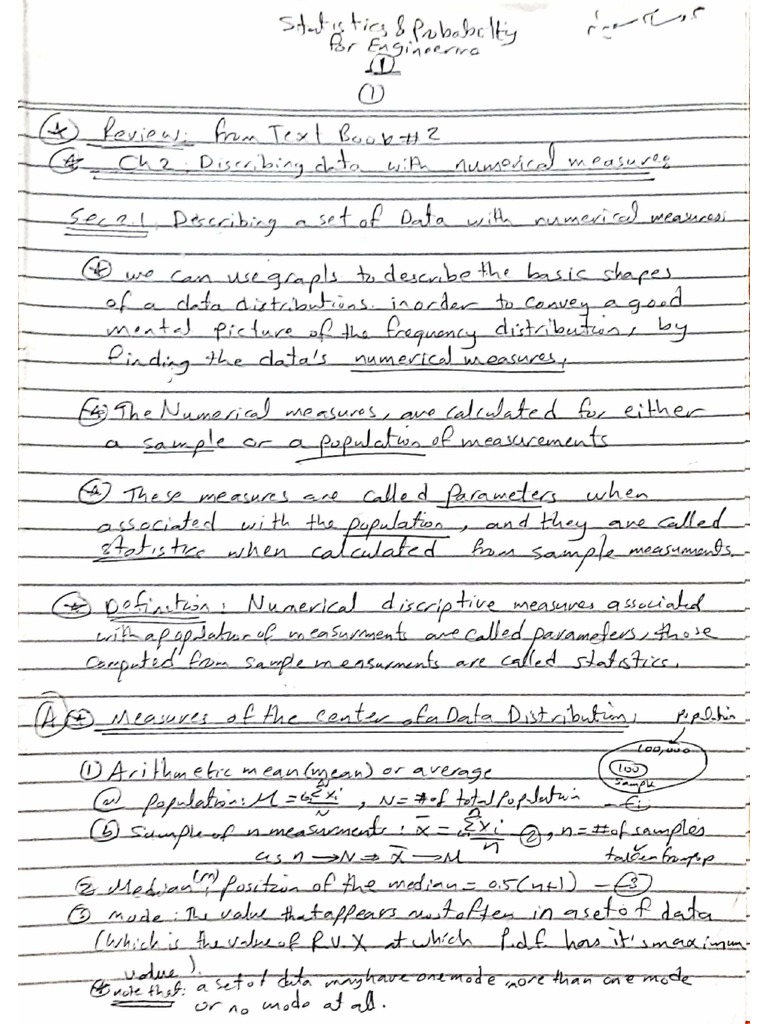 Statistics & Probability
for Engineering
①
①
⊛ Review: from Text Book #2
⊛ Ch2: Discribing data with numerical measures
Sec 2.1. Describing a set of Data with numerical measures:
⊛ we can use graphs to describe the basic shapes
of a data distributions. inorder to convey a good
mental picture of the frequency distribution, by
finding the data's numerical measures,
⊛ The Numerical measures, are calculated for either
a sample or a population of measurements
⊛ These measures are called Parameters when
associated with the population, and they are called
statistics when calculated from sample measuments.
⊛ Definition: Numerical discriptive measures associated
with a population of measurments are called parameters, those
computed from sample measurments are called statistics.
Ⓐ ⊛ Measures of the center of a Data Distribution, population
100,000
100
sample
① Arithmetic mean (mean) or average
ⓐ population: M = Σxi/N, N = # of total Population —①
ⓑ Sample of n measurments: x̄ = Σxi/n ②, n = # of samples
taken from pop
as n → N ⇒ x̄ → M
② Median (m); Position of the median = 0.5(n+1) —③
③ mode: The value that appears most often in a set of data
(which is the value of R.V. X at which P.d.f has it's maximum
value).
⊛ note that: a set of data may have one mode, more than one mode
or no mode at all.